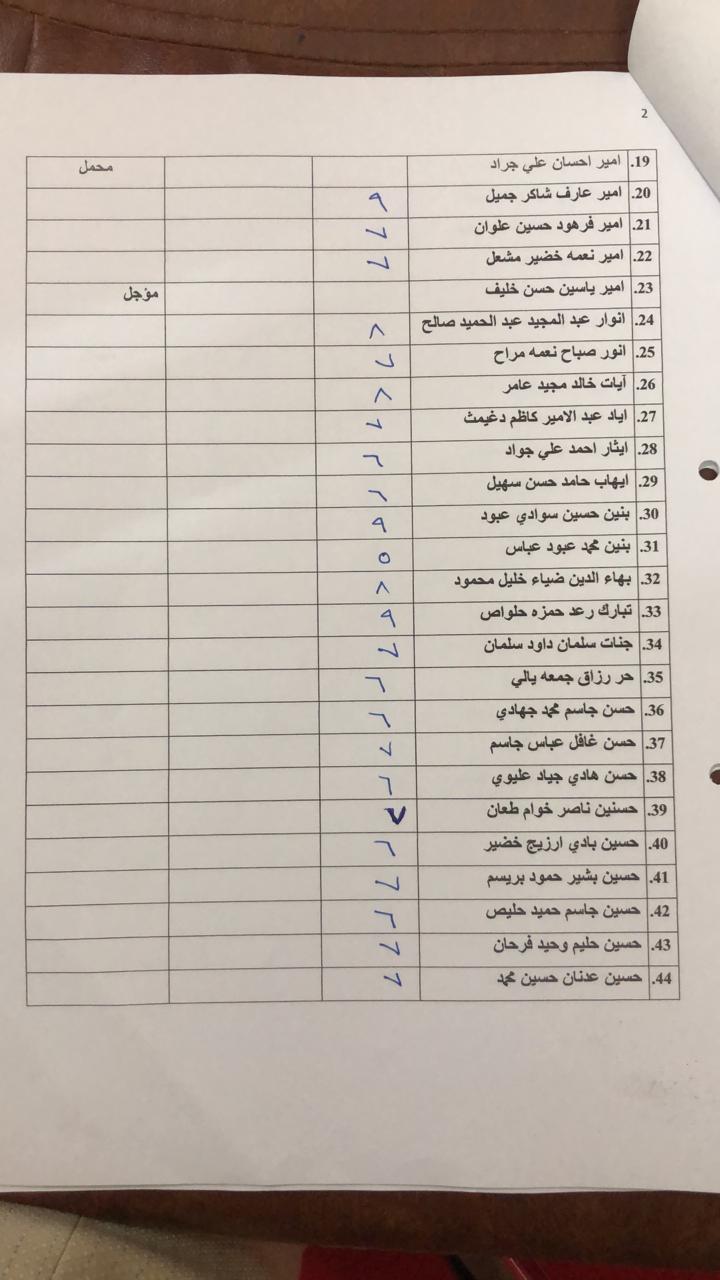 2
19. امير احسان علي جراد محمل
20. امير عارف شاكر جميل ٩
21. امير فرهود حسين علوان ٧
22. امير نعمه خضير مشعل ٧
23. امير ياسين حسن خليف مؤجل
24. انوار عبد المجيد عبد الحميد صالح ٨
25. انور صباح نعمه مراح ٧
26. آيات خالد مجيد عامر ٨
27. اياد عبد الامير كاظم دغيمث ٧
28. ايثار احمد علي جواد ٦
29. ايهاب حامد حسن سهيل ٦
30. بنين حسين سوادي عبود ٩
31. بنين محمد عبود عباس ٥
32. بهاء الدين ضياء خليل محمود ٨
33. تبارك رعد حمزه حلواص ٩
34. جنات سلمان داود سلمان ٧
35. حر رزاق جمعه يالي ٦
36. حسن جاسم محمد جهادي ٦
37. حسن غافل عباس جاسم ٧
38. حسن هادي جياد عليوي ٦
39. حسنين ناصر خوام طعان ٧
40. حسين بادي ارزيج خضير ٦
41. حسين بشير حمود بريسم ٧
42. حسين جاسم حميد حليص ٦
43. حسين حليم وحيد فرحان ٧
44. حسين عدنان حسين محمد ٧